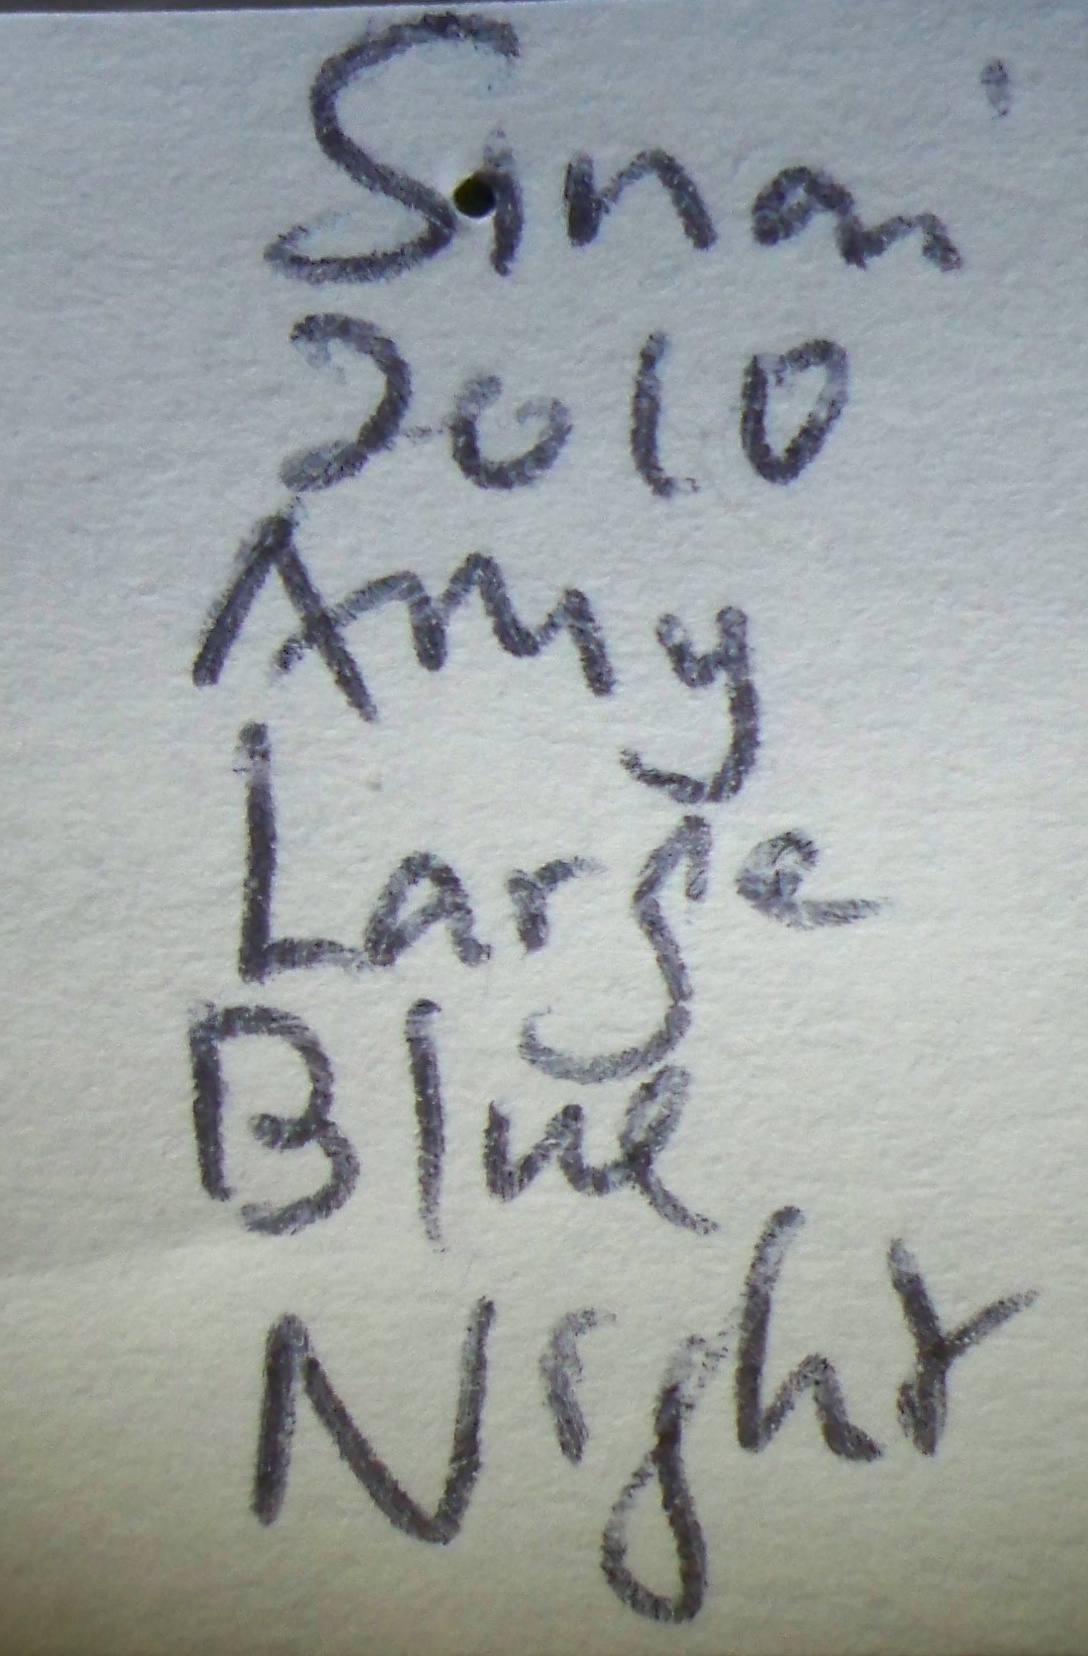 Sinai
2010
Amy
Large
Blue
Night